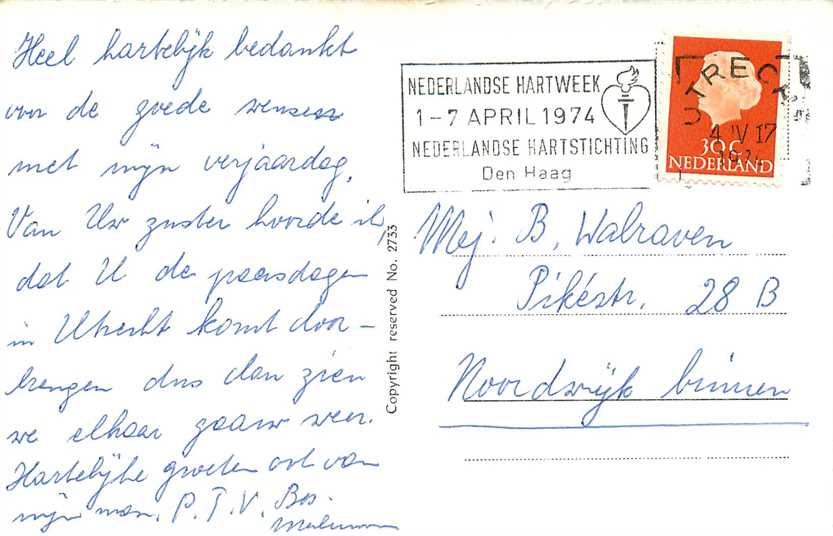 Heel hartelijk bedankt
voor de goede wensen
met mijn verjaardag.
Van Uw zuster hoorde ik,
dat U de paasdagen
in Utrecht komt door-
brengen dus dan zien
we elkaar gauw weer.
Hartelijke groeten ook van
mijn man. P. T. V. Bos-
Copyright reserved No. 2733
NEDERLANDSE HARTWEEK
1-7 APRIL 1974
NEDERLANDSE HARTSTICHTING
Den Haag
UTRECHT
4 IV 17
1974
30 C
NEDERLAND
Mej. B. Walraven
Pikéstr. 28 B
Noordwijk binnen